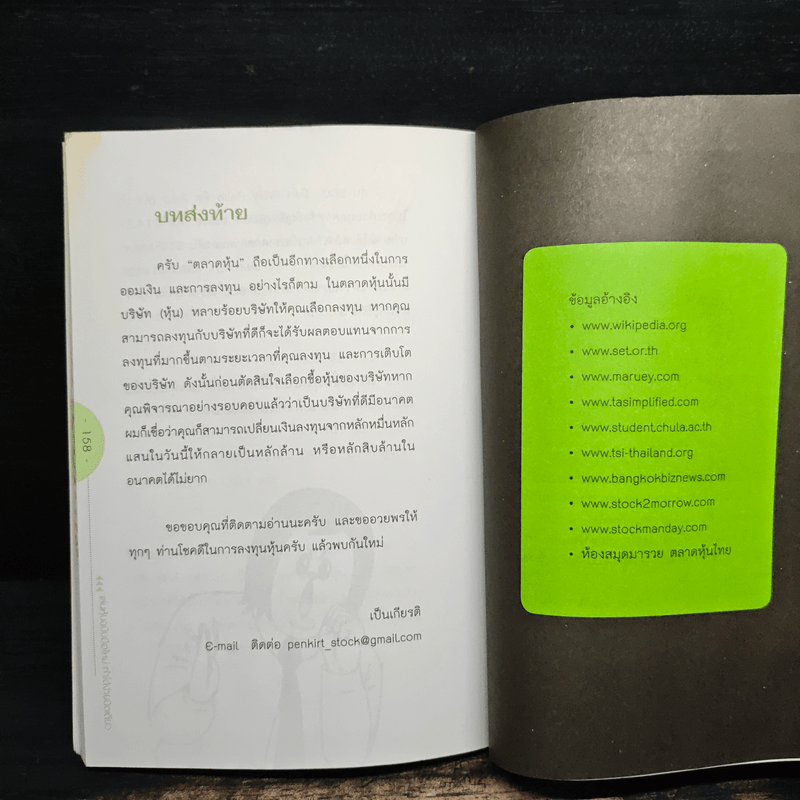 บทส่งท้าย
ครับ “ตลาดหุ้น” ถือเป็นอีกทางเลือกหนึ่งในการ
ออมเงิน และการลงทุน อย่างไรก็ตาม ในตลาดหุ้นนั้นมี
บริษัท (หุ้น) หลายร้อยบริษัทให้คุณเลือกลงทุน หากคุณ
สามารถลงทุนกับบริษัทที่ดีก็จะได้รับผลตอบแทนจากการ
ลงทุนที่มากขึ้นตามระยะเวลาที่คุณลงทุน และการเติบโต
ของบริษัท ดังนั้นก่อนตัดสินใจเลือกซื้อหุ้นของบริษัทหาก
คุณพิจารณาอย่างรอบคอบแล้วว่าเป็นบริษัทที่ดีมีอนาคต
ผมก็เชื่อว่าคุณก็สามารถเปลี่ยนเงินลงทุนจากหลักหมื่นหลัก
แสนในวันนี้ให้กลายเป็นหลักล้าน หรือหลักสิบล้านใน
อนาคตได้ไม่ยาก
ขอขอบคุณที่ติดตามอ่านนะครับ และขออวยพรให้
ทุกๆ ท่านโชคดีในการลงทุนหุ้นครับ แล้วพบกันใหม่
เป็นเกียรติ
E-mail ติดต่อ penkirt_stock@gmail.com
- 158 -
ข้อมูลอ้างอิง
• www.wikipedia.org
• www.set.or.th
• www.maruey.com
• www.tasimplified.com
• www.student.chula.ac.th
• www.tsi-thailand.org
• www.bangkokbiznews.com
• www.stock2morrow.com
• www.stockmanday.com
• ห้องสมุดมารวย ตลาดหุ้นไทย